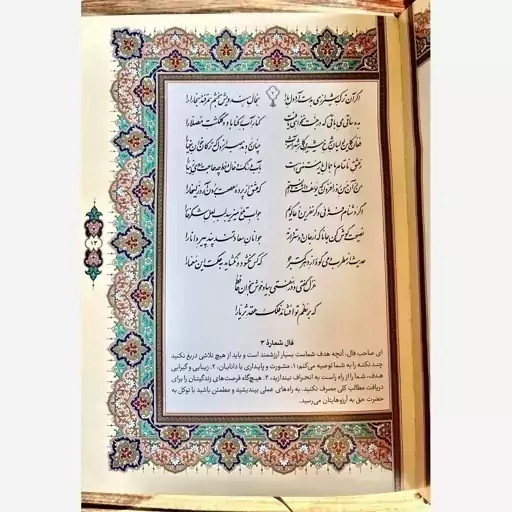 ۳
اگر آن ترک شیرازی به دست آرد دل ما را به خال هندویش بخشم سمرقند و بخارا را
بده ساقی می باقی که در جنت نخواهی یافت کنار آب رکناباد و گلگشت مصلا را
فغان کاین لولیان شوخ شیرین کار شهرآشوب چنان بردند صبر از دل که ترکان خوان یغما را
ز عشق ناتمام ما جمال یار مستغنی است به آب و رنگ و خال و خط چه حاجت روی زیبا را
من از آن حسن روزافزون که یوسف داشت دانستم که عشق از پرده عصمت برون آرد زلیخا را
اگر دشنام فرمایی و گر نفرین دعا گویم جواب تلخ می‌زیبد لب لعل شکرخا را
نصیحت گوش کن جانا که از جان دوست‌تر دارند جوانان سعادتمند پند پیر دانا را
حدیث از مطرب و می گو و راز دهر کمتر جو که کس نگشود و نگشاید به حکمت این معما را
غزل گفتی و در سفتی بیا و خوش بخوان حافظ
که بر نظم تو افشاند فلک عقد ثریا را
۱۳
فال شمارهٔ ۳
ای صاحب فال، آنچه هدف شماست بسیار ارزشمند است و باید از هیچ تلاشی دریغ نکنید
چند نکته را به شما توصیه می‌کنم: ۱. مشورت و پایداری با دانایان، ۲. زیبایی و گیرایی
هدف، شما را از راه راست به انحراف نیندازید، ۳. هیچ‌گاه فرصت‌های زندگیتان را برای
دریافت مطالب کلی مصرف نکنید. به راه‌های عملی بیندیشید و مطمئن باشید با توکل به
حضرت حق به آرزوهایتان می‌رسید.